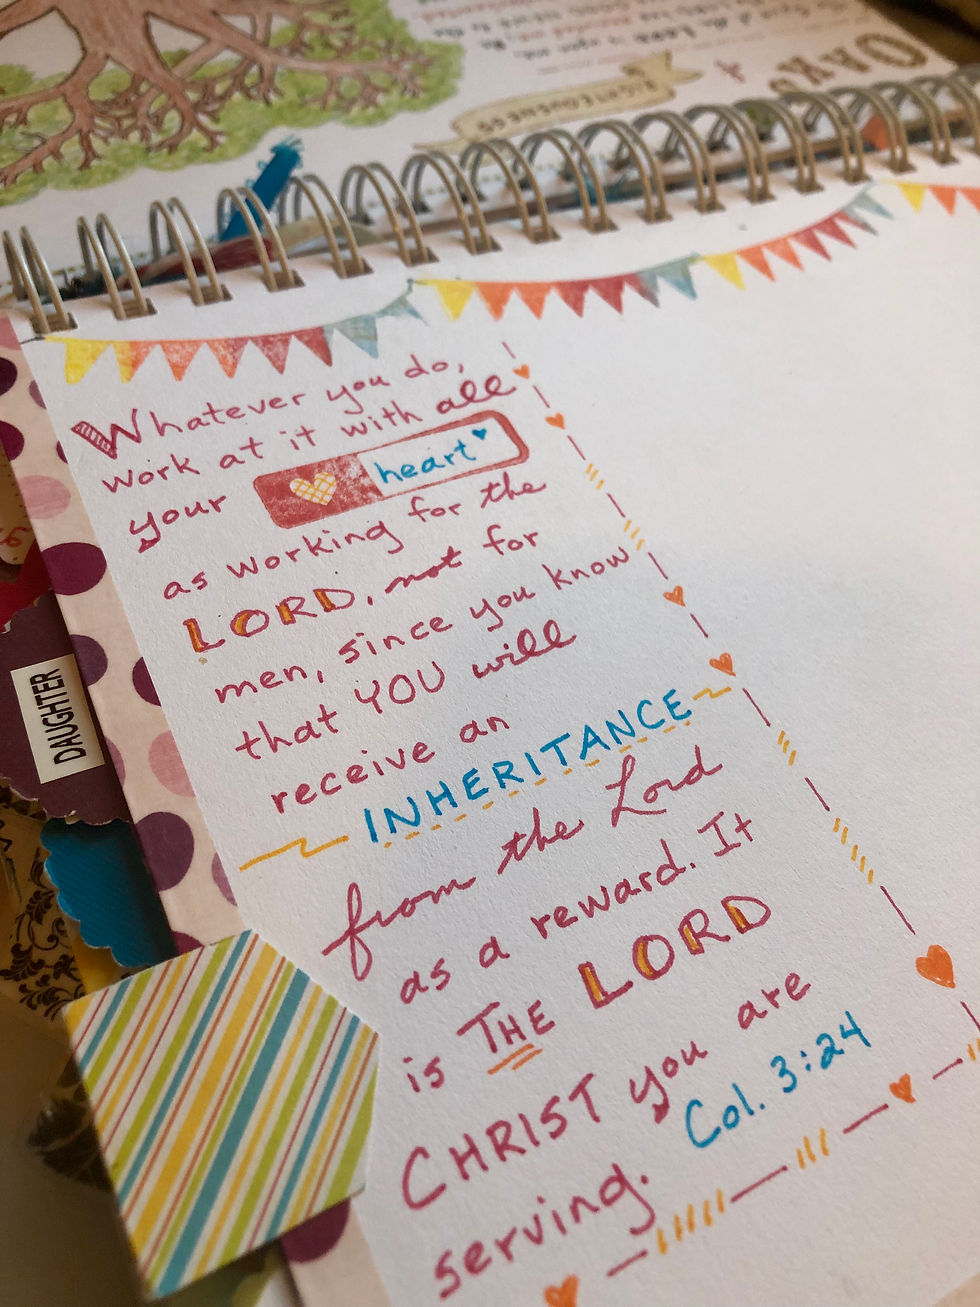 OAKS
RIGHTEOUSNESS
Whatever you do,
work at it with all
your heart
as working for the
LORD, not for
men, since you know
that YOU will
receive an
INHERITANCE
from the Lord
as a reward. It
is THE LORD
CHRIST you are
serving. Col. 3:24
DAUGHTER